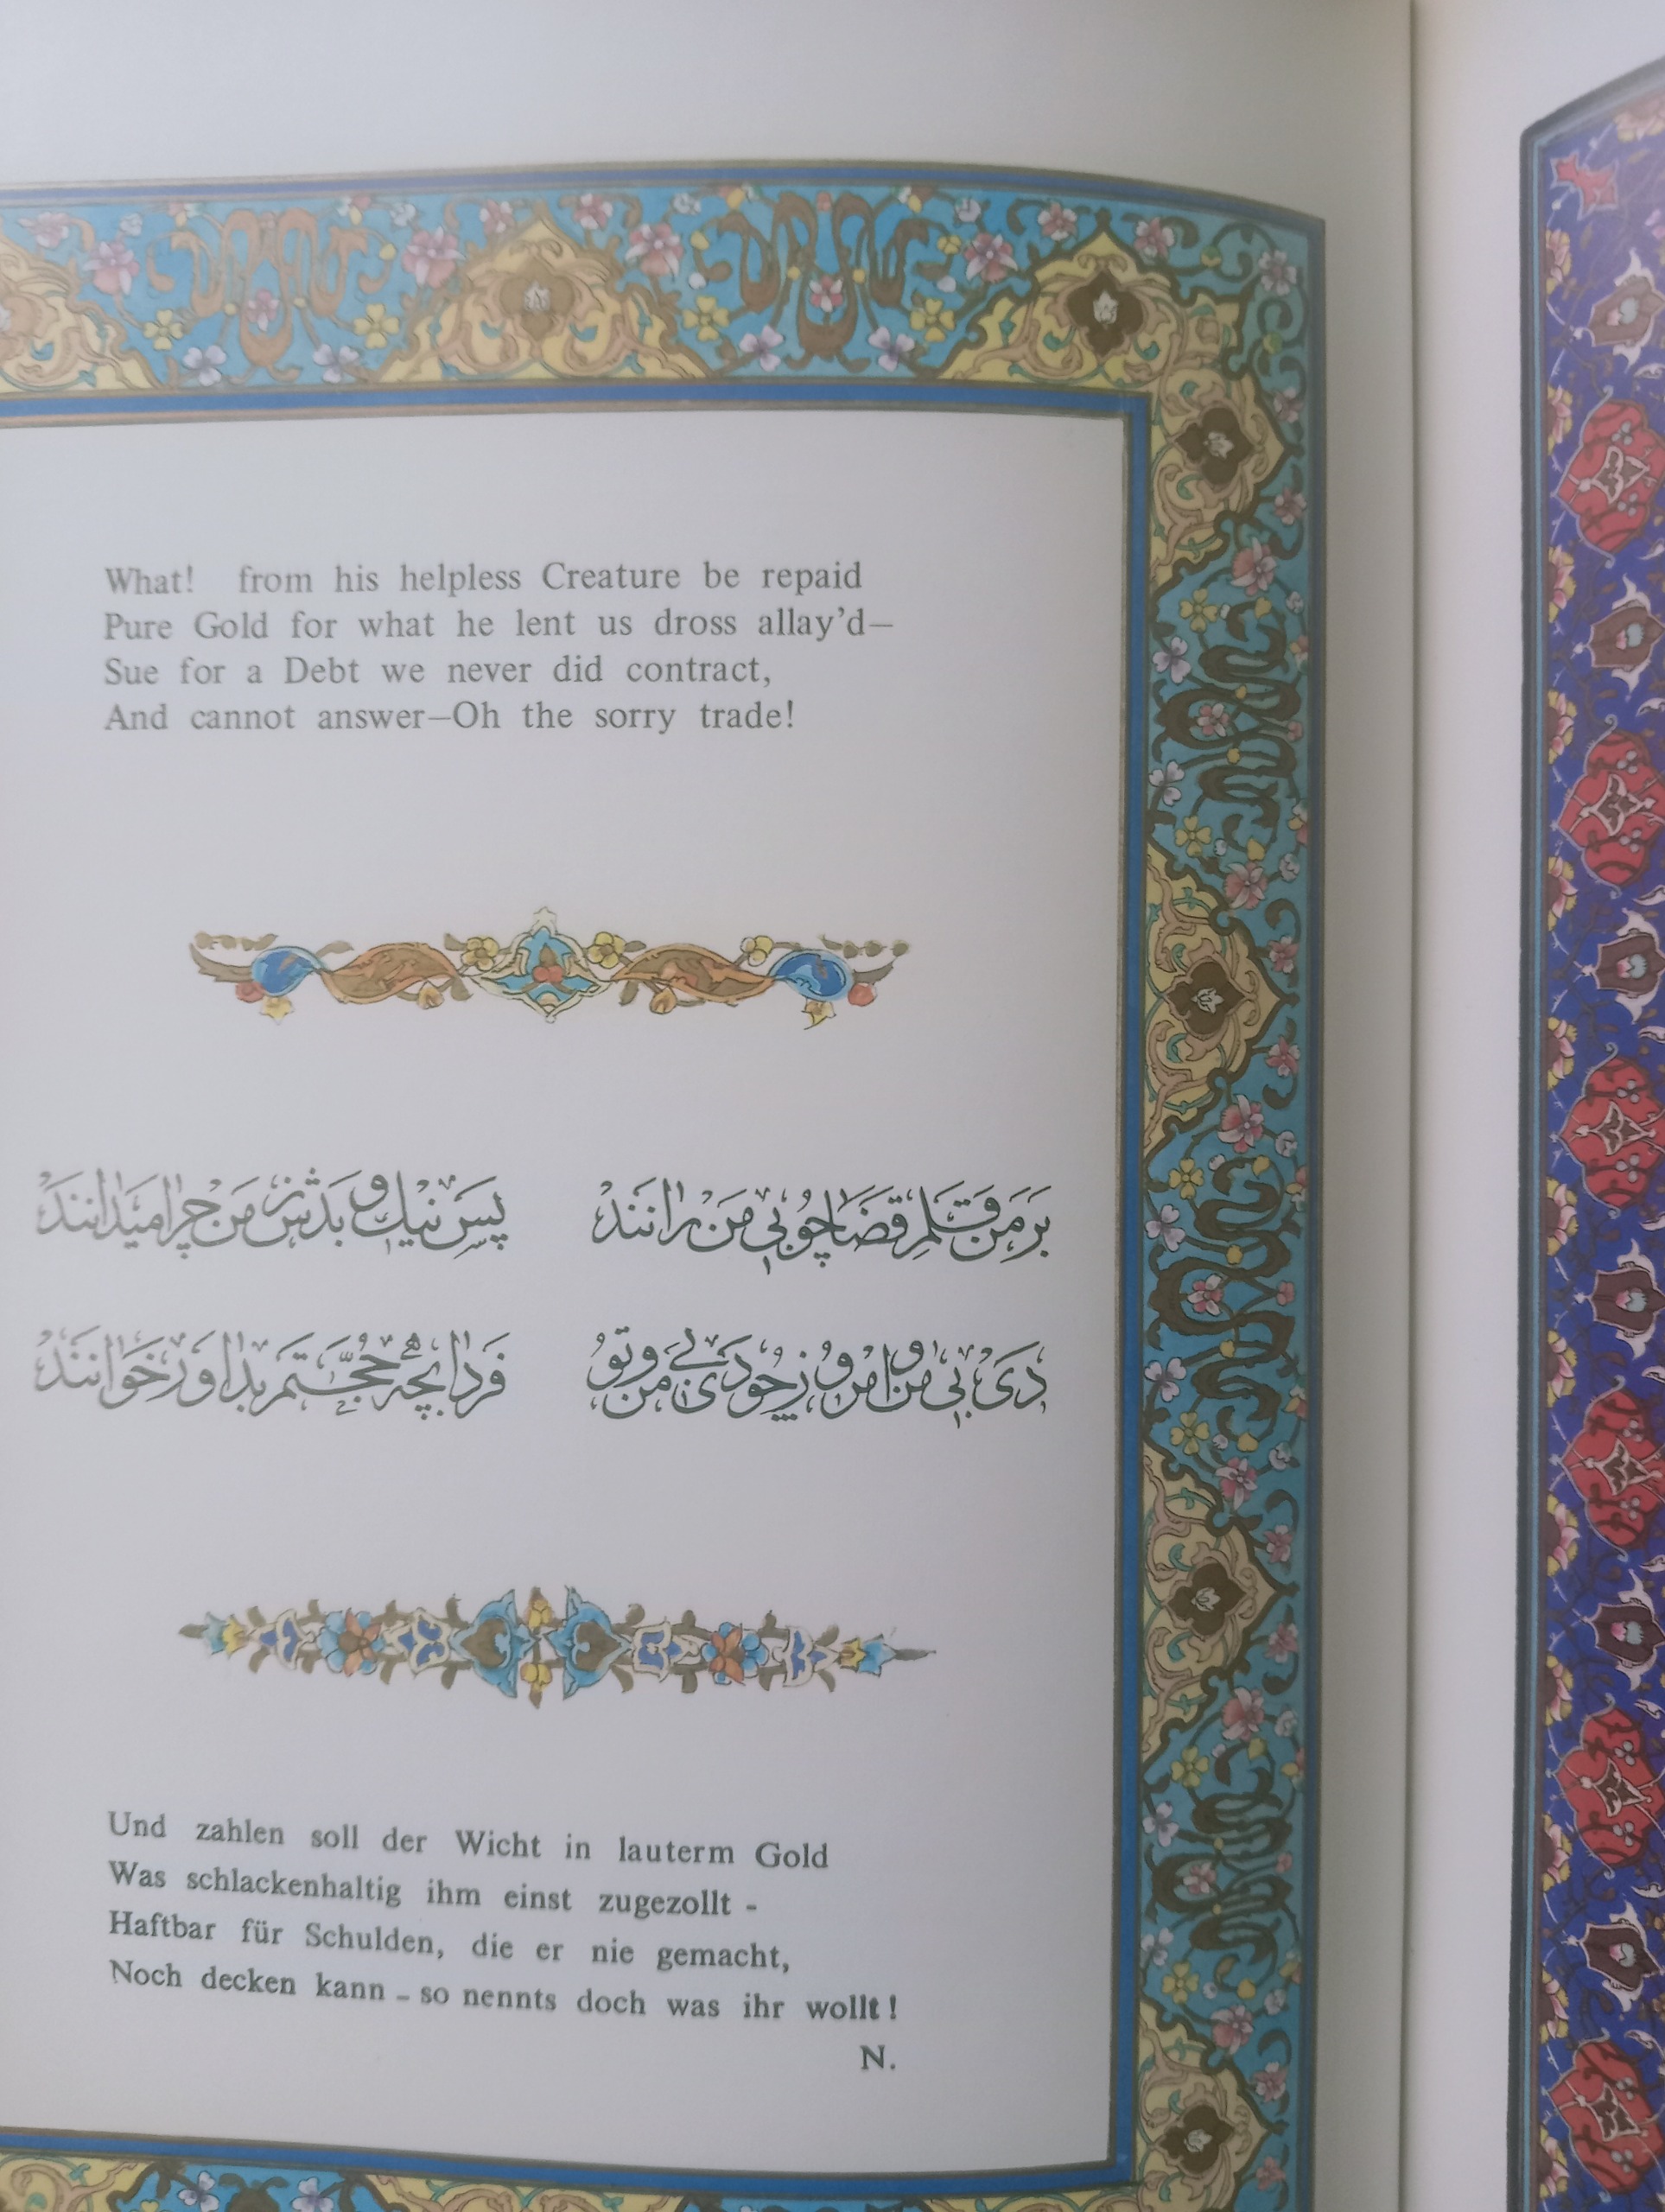 What! from his helpless Creature be repaid
Pure Gold for what he lent us dross allay'd—
Sue for a Debt we never did contract,
And cannot answer—Oh the sorry trade!
بَر مَن قَلَمِ قَضا چو بی مَن رانَند
پَس نیک و بَدش زِ مَن چرا میدانَند
دی بی مَن و امروز چو دی بی مَن و تو
فَردا بچه حُجَّتَم بداور خوانَند
Und zahlen soll der Wicht in lauterm Gold
Was schlackenhaltig ihm einst zugezollt -
Haftbar für Schulden, die er nie gemacht,
Noch decken kann - so nennts doch was ihr wollt!
N.